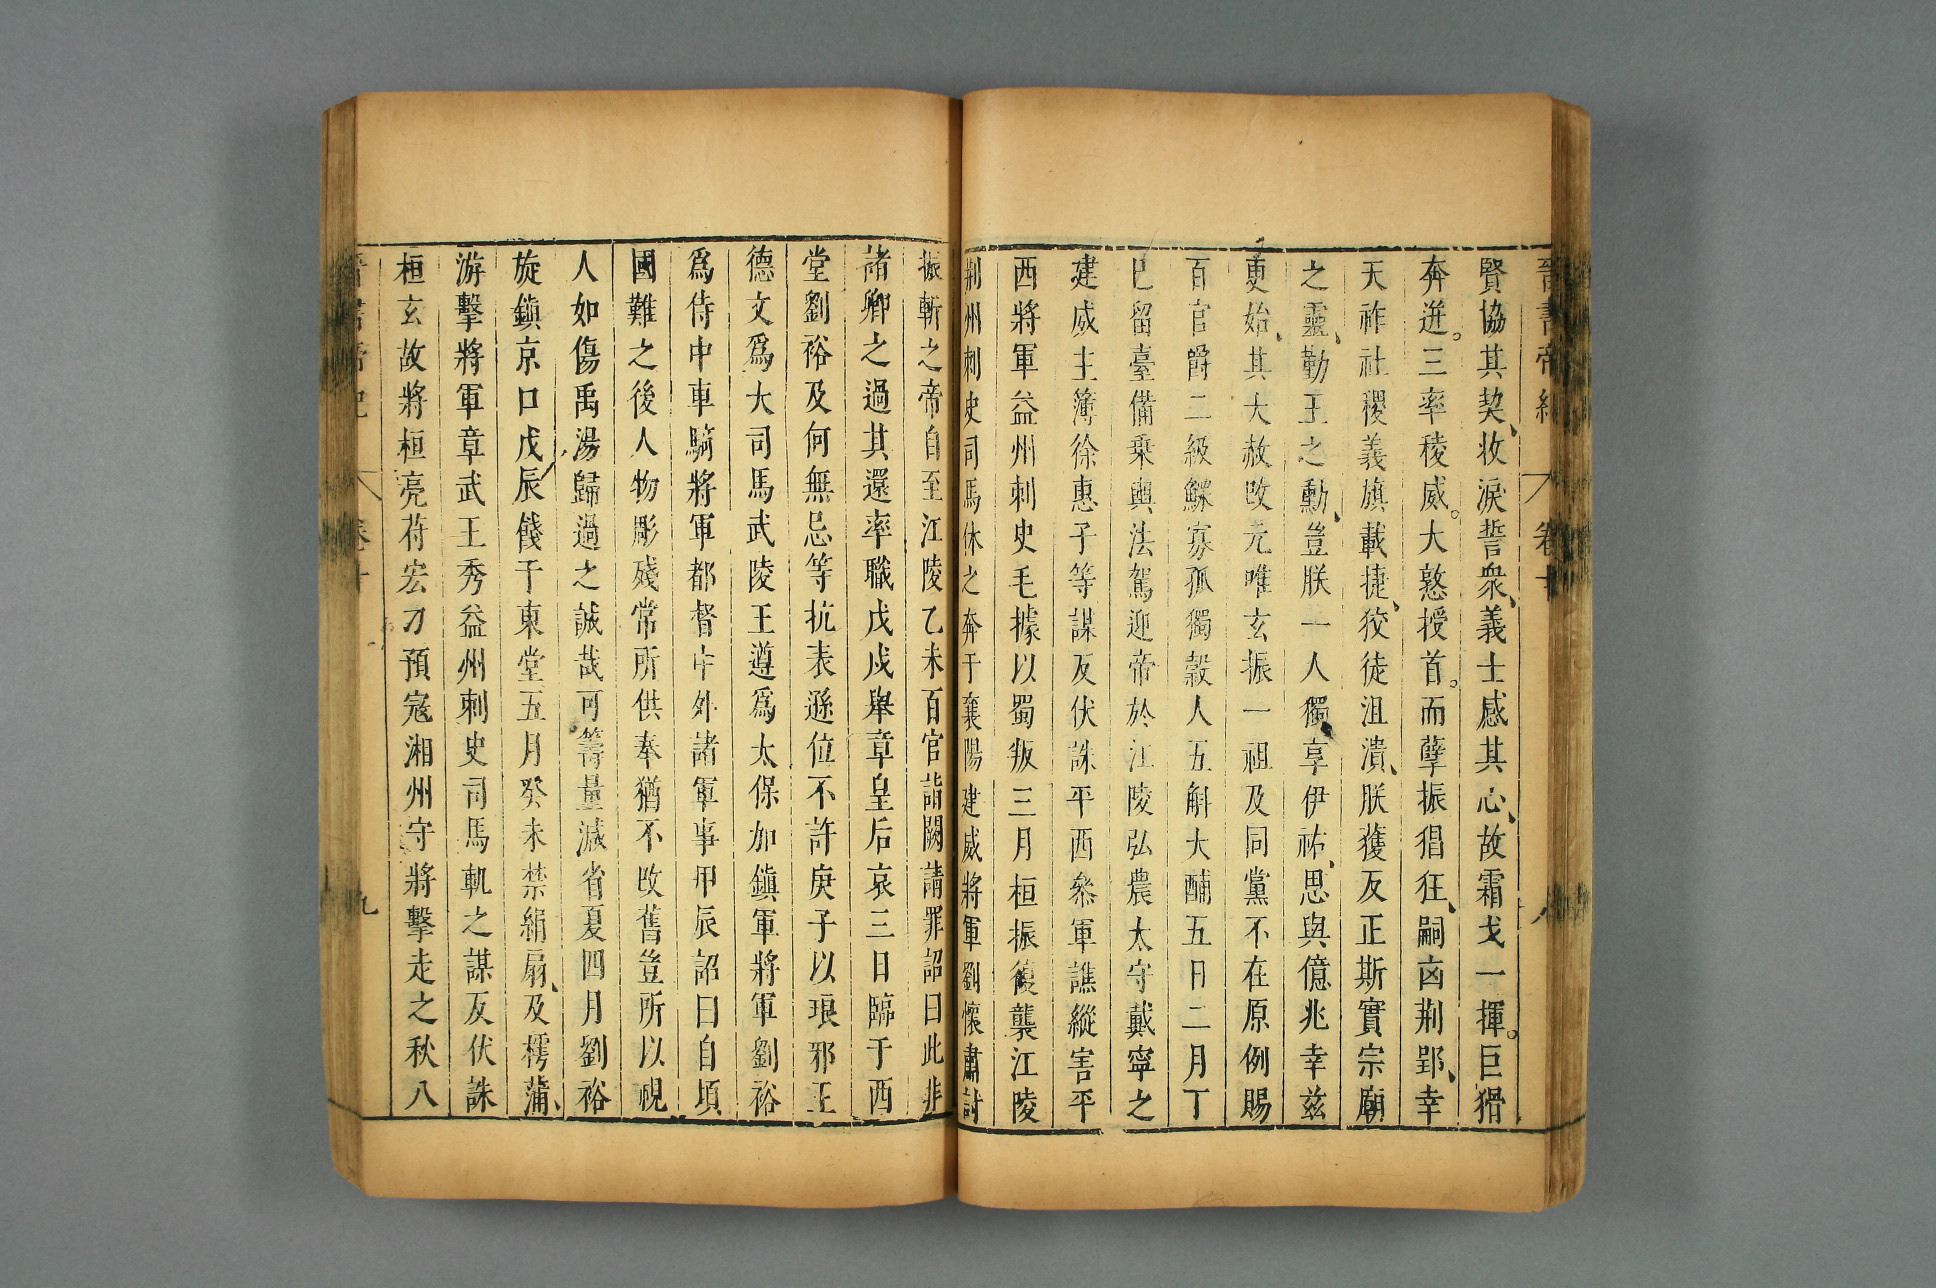 晉書帝紀 卷十 八
賢協其契、收淚誓衆、義士感其心、故霜戈一揮。巨猾
奔迸。三率稜威。大憝授首。而孽振猖狂、嗣凶荆郢、幸
天祚社稷義旗載捷、狡徒沮潰、朕獲反正斯實宗廟
之靈、勤王之勳、豈朕一人獨享伊祐、思與億兆幸兹
更始、其大赦改元唯玄振一祖及同黨不在原例賜
百官爵二級鰥寡孤獨穀人五斛大酺五日二月丁
巳留臺備乘輿法駕迎帝於江陵弘農太守戴寧之
建威主簿徐惠子等謀反伏誅平西參軍譙縱害平
西將軍益州刺史毛據以蜀叛三月桓振復襲江陵
荆州刺史司馬休之奔于襄陽建威將軍劉懷肅討
振斬之帝自至江陵乙未百官詣闕請罪詔曰此非
諸卿之過其還率職戊戌舉章皇后哀三日臨于西
堂劉裕及何無忌等抗表遜位不許庚子以琅邪王
德文爲大司馬武陵王遵爲太保加鎮軍將軍劉裕
爲侍中車騎將軍都督中外諸軍事甲辰詔曰自頃
國難之後人物彫殘常所供奉猶不改舊豈所以視
人如傷禹湯歸過之誠哉可籌量減省夏四月劉裕
旋鎮京口戊辰餞于東堂五月癸未禁絹扇、及樗蒲、
游擊將軍章武王秀益州刺史司馬軌之謀反伏誅
桓玄故將桓亮苻宏刁預寇湘州守將擊走之秋八
晉書帝紀 卷十 九